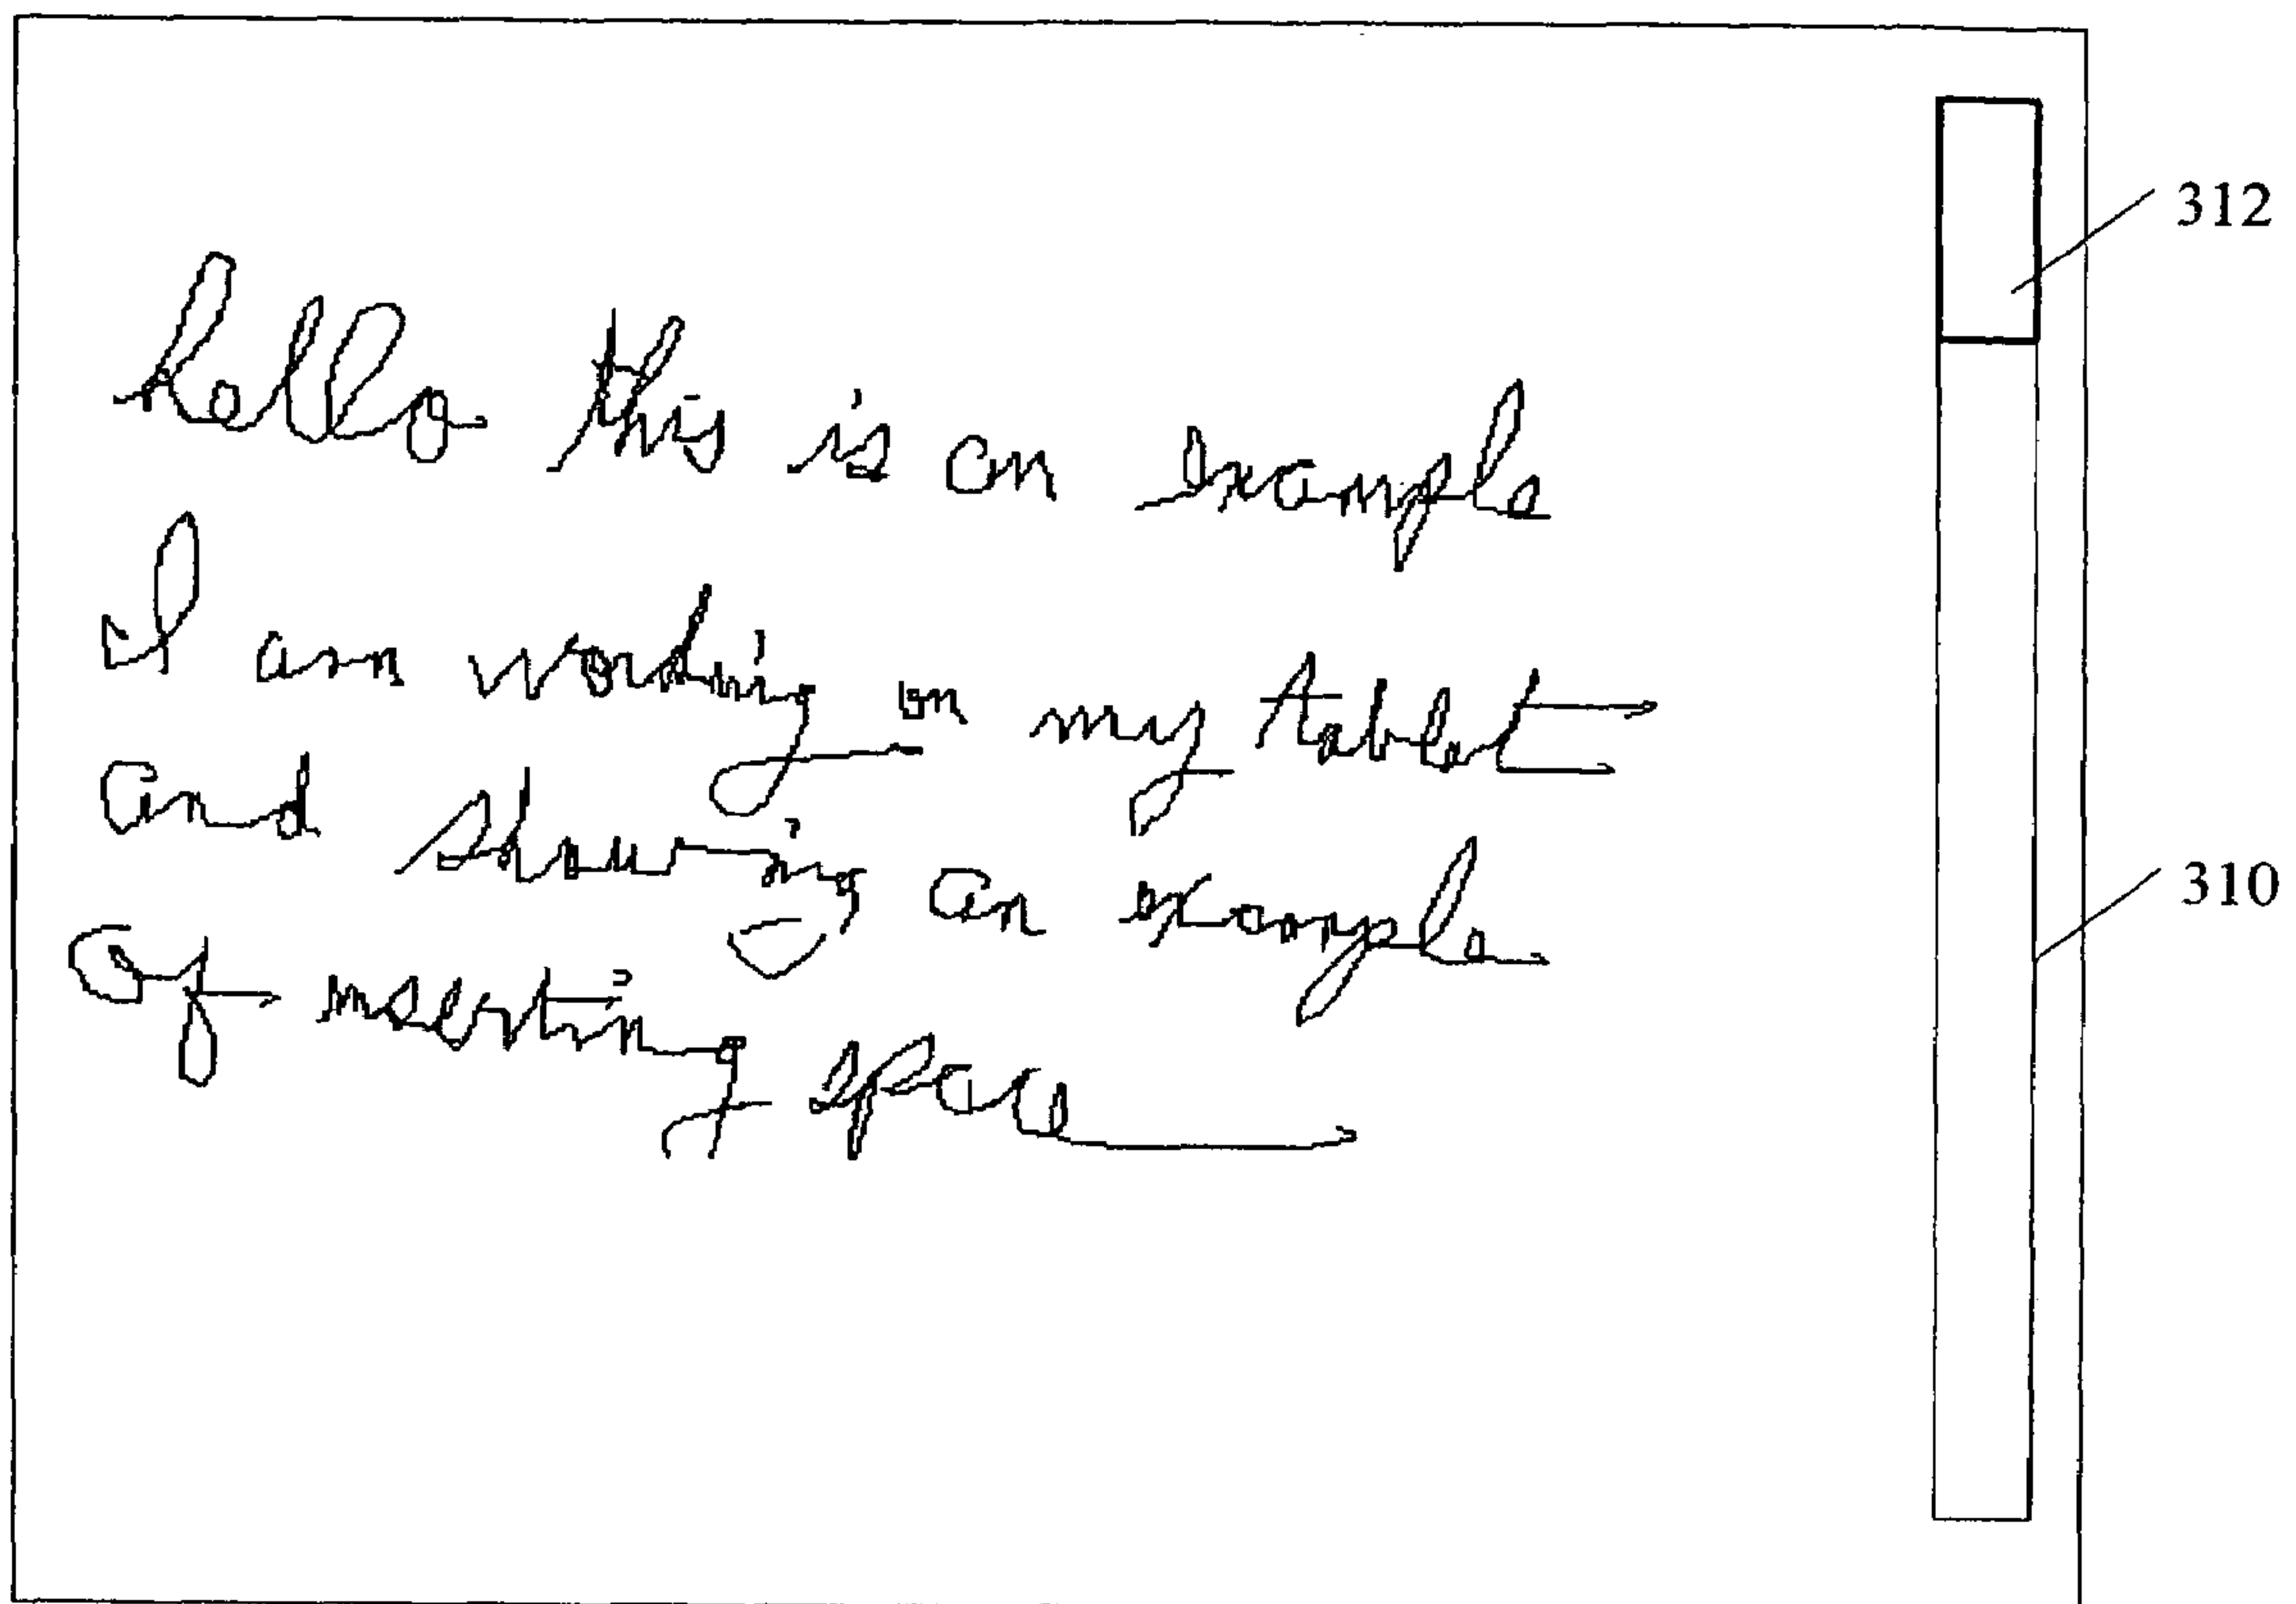 hello this is an example
312
I am working on my tablet
and showing an example
310
of inserting space